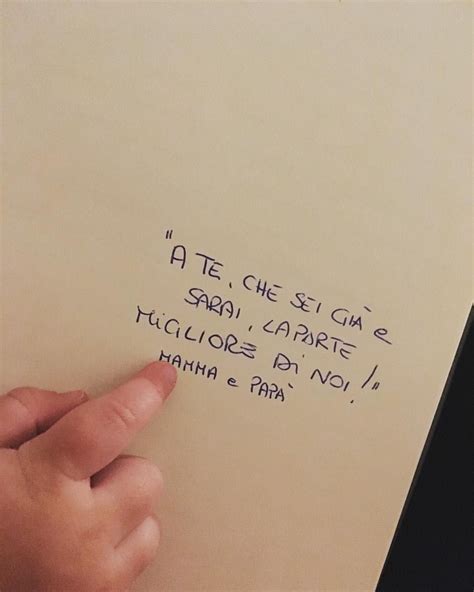 "A TE, CHE SEI GIÀ e
SARAI, LA PARTE
MIGLIORE DI NOI!"
MAMMA e PAPÀ